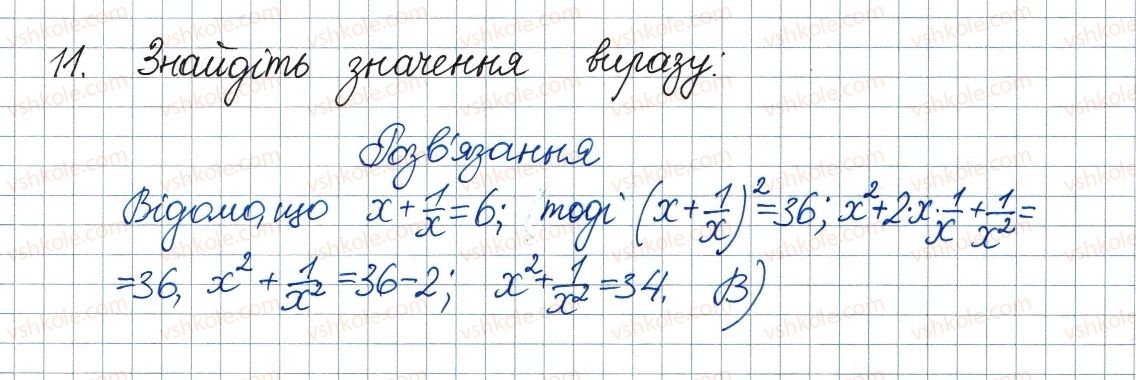 11. Знайдіть значення виразу:
Розв'язання
Відомо, що x + 1/x = 6; тоді (x + 1/x)² = 36; x² + 2·x·1/x + 1/x² =
= 36, x² + 1/x² = 36 - 2; x² + 1/x² = 34. В)